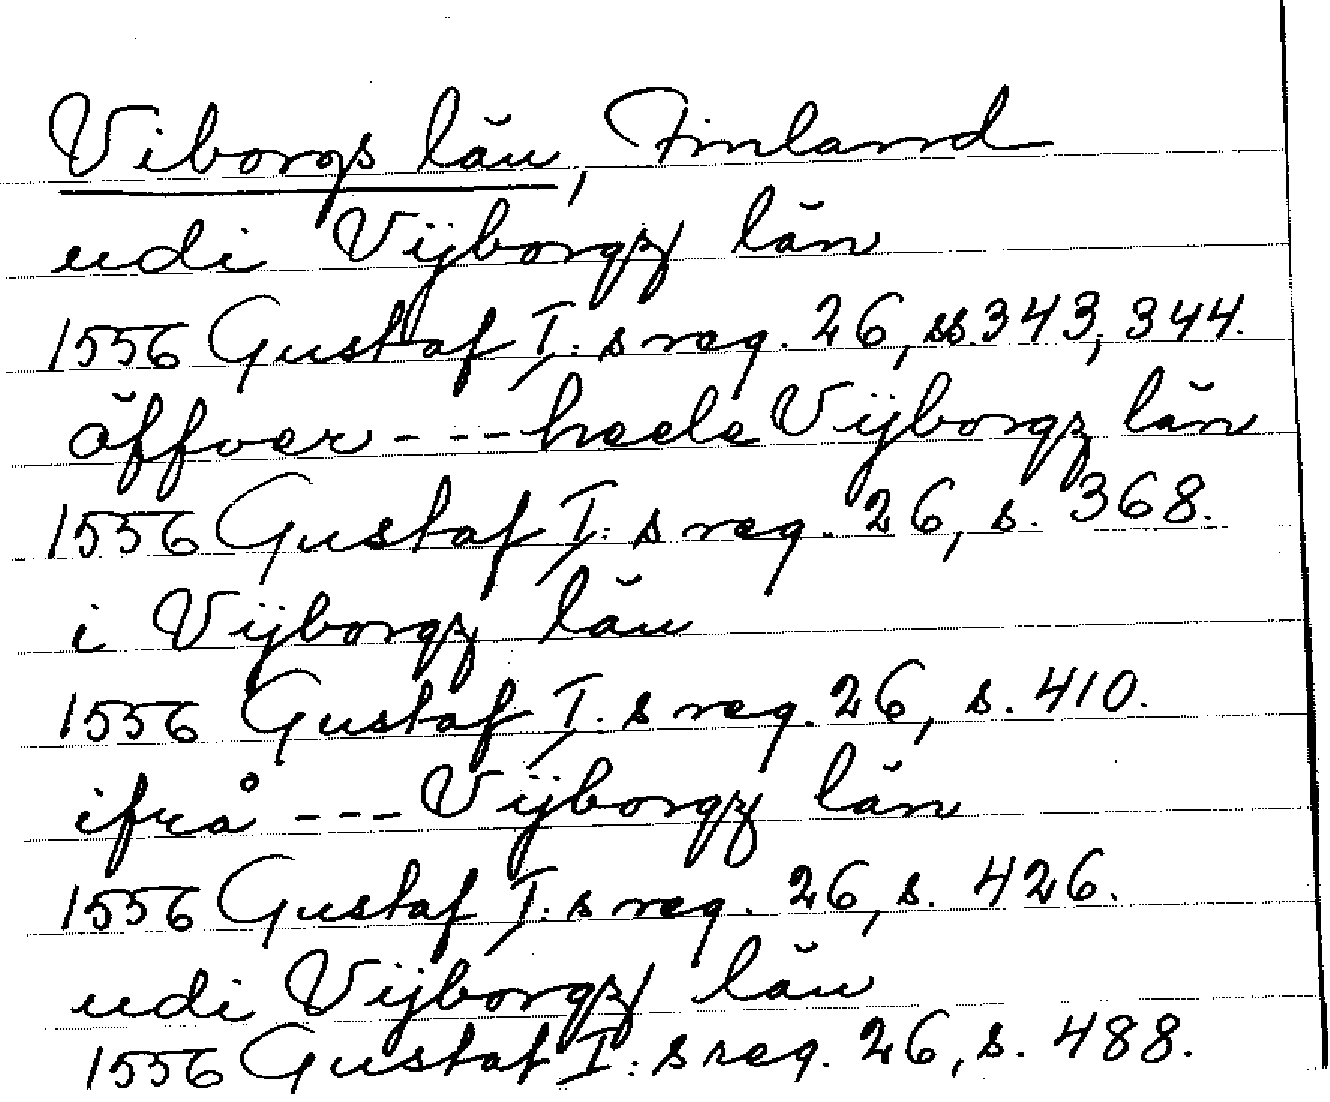 Viborgs län, Finland
udi Vijborgz län
1556 Gustaf I:s reg. 26, ss. 343, 344.
öffver --- heele Vijborgz län
1556 Gustaf I:s reg. 26, s. 368.
i Vijborgz län
1556 Gustaf I:s reg. 26, s. 410.
ifrå --- Vijborgz län
1556 Gustaf I:s reg. 26, s. 426.
udi Vijborgz län
1556 Gustaf I:s reg. 26, s. 488.